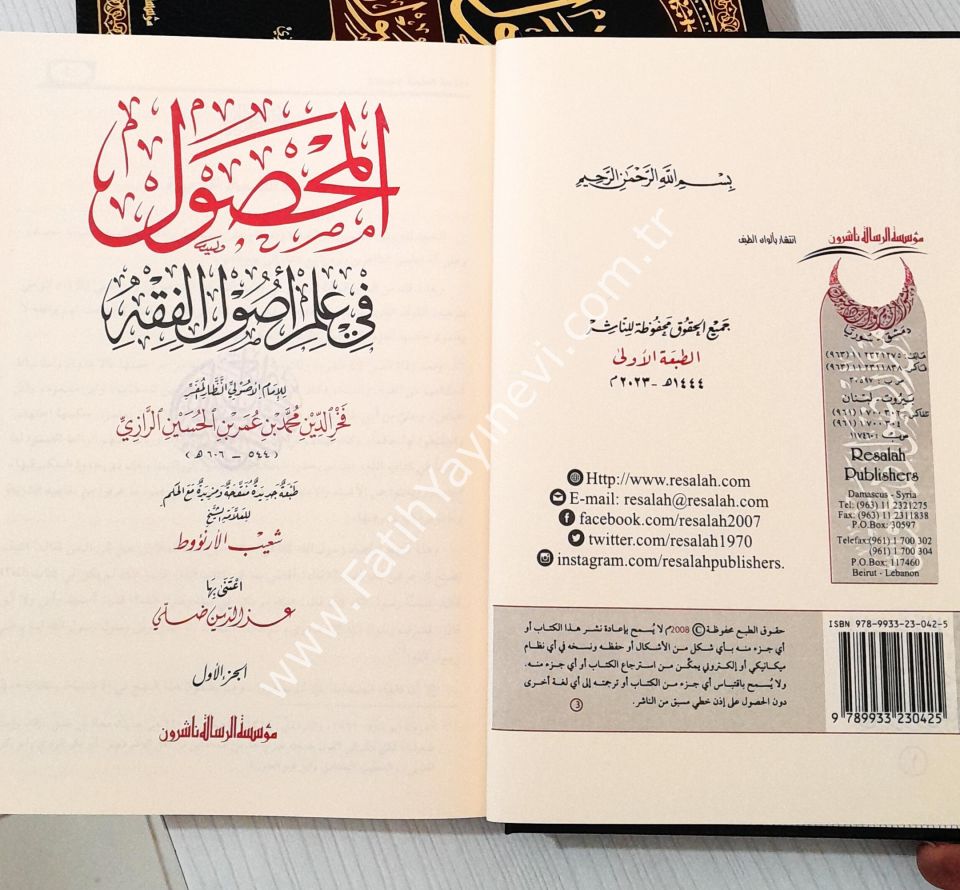 بِسْمِ اللَّهِ الرَّحْمَٰنِ الرَّحِيمِ
مؤسسة الرسالة ناشرون
انتشار بألوان الطيف
جميع الحقوق محفوظة للناشر
الطبعة الأولى
١٤٤٤هـ - ٢٠٢٣م
دمشق - سوريا
هاتف: ٢٣٢١٢٧٥ ١١ (٩٦٣)
فاكس: ٢٣١١٨٣٨ ١١ (٩٦٣)
ص.ب: ٣٠٥٩٧
بيروت - لبنان
تلفاكس: ٧٠٠٣٠٢ ١ (٩٦١)
٧٠٠٣٠٤ ١ (٩٦١)
ص.ب: ١١٧٤٦٠
Resalah
Publishers
Damascus - Syria
Tel: (963) 11 2321275
Fax: (963) 11 2311838
P.O.Box: 30597
Telefax:(961) 1 700 302
(961) 1 700 304
P.O.Box: 117460
Beirut - Lebanon
Http://www.resalah.com
E-mail: resalah@resalah.com
facebook.com/resalah2007
twitter.com/resalah1970
instagram.com/resalahpublishers.
حقوق الطبع محفوظة © 2008م لا يُسمح بإعادة نشر هذا الكتاب أو
أي جزء منه بأي شكل من الأشكال أو حفظه ونسخه في أي نظام
ميكانيكي أو إلكتروني يمكّن من استرجاع الكتاب أو أي جزء منه.
ولا يُسمح باقتباس أي جزء من الكتاب أو ترجمته إلى أي لغة أخرى
دون الحصول على إذن خطي مسبق من الناشر.
3
ISBN 978-9933-23-042-5
9 789933 230425
المحصول
في علم أصول الفقه
للإمام الأصولي النظار المفسر
فخر الدين محمد بن عمر بن الحسين الرازي
(٥٤٤ - ٦٠٦ هـ)
طبعة جديدة منقحة ومزيدة مع الحكم
للعلامة الشيخ
شعيب الأرنؤوط
اعتنى بها
عز الدين ضلي
الجزء الأول
مؤسسة الرسالة ناشرون
www.FatihYayinevi.com.tr